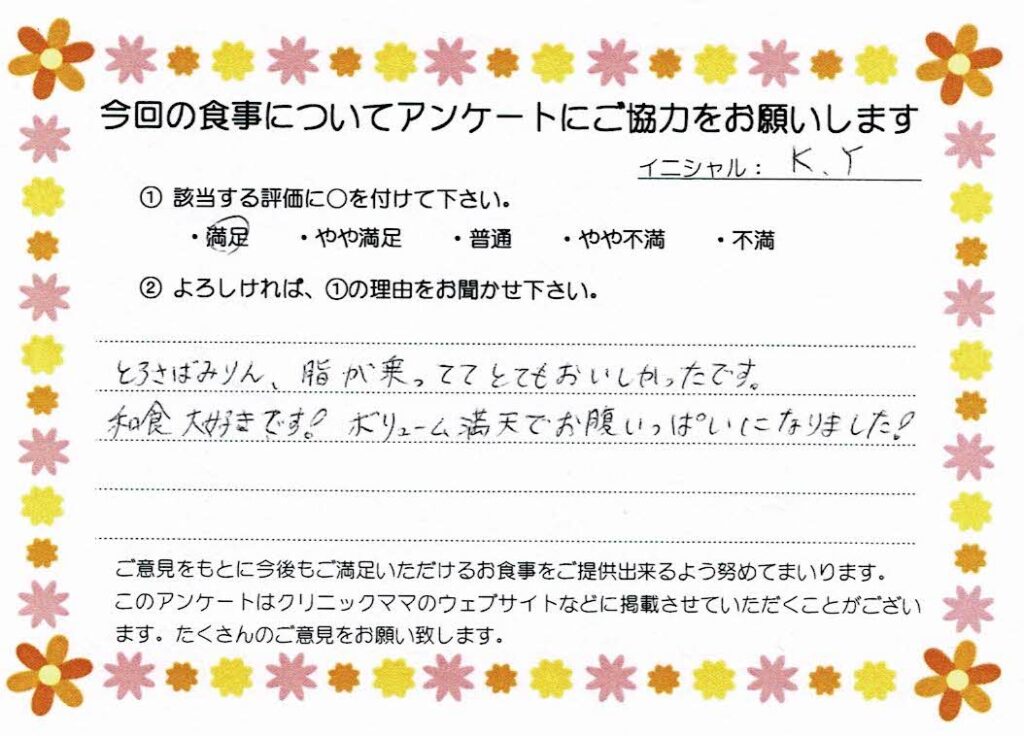 今回の食事についてアンケートにご協力をお願いします
イニシャル： K、Y
① 該当する評価に○を付けて下さい。
・満足 ・やや満足 ・普通 ・やや不満 ・不満
② よろしければ、①の理由をお聞かせ下さい。
とろさばみりん、脂が乗っててとてもおいしかったです。
和食大好きです！ボリューム満天でお腹いっぱいになりました！
ご意見をもとに今後もご満足いただけるお食事をご提供出来るよう努めてまいります。
このアンケートはクリニックママのウェブサイトなどに掲載させていただくことがござい
ます。たくさんのご意見をお願い致します。